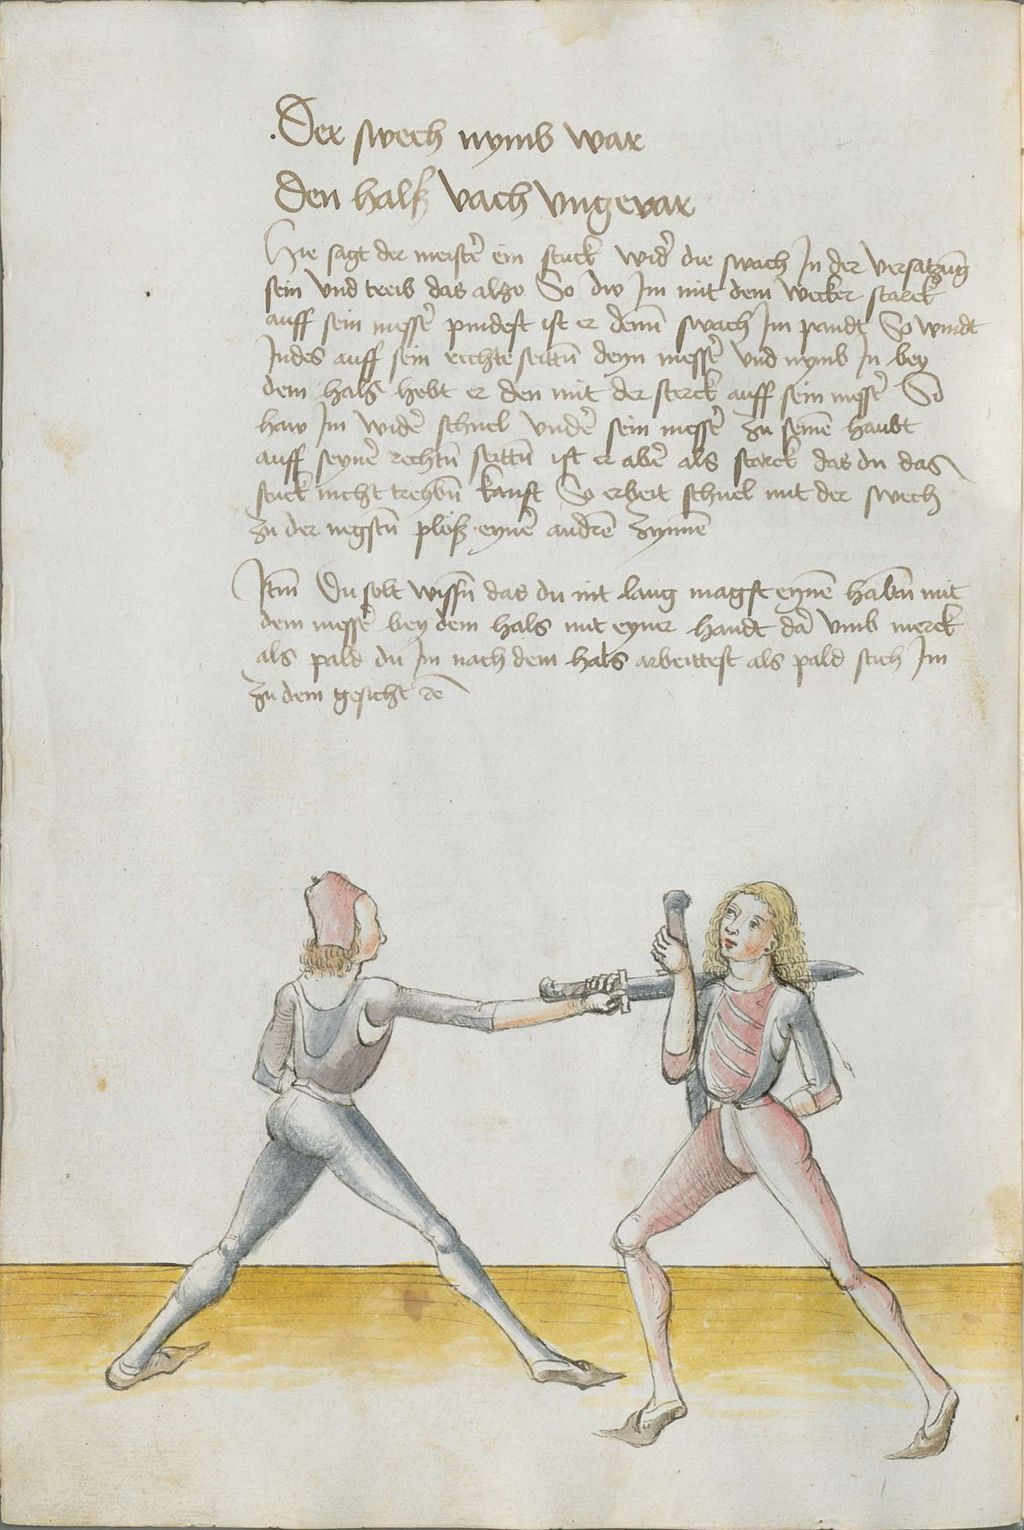 Der swech nymb war
den halß vach vngevar
Hie sagt der meister ein stuck wider die swach In der versatzung
sein vnd treib das also So dw Im mit dem wecker starck
auff sein messer pindest ist er denn swach Im pandt So windt
Indes auff sein rechte seittn deyn messer vnd nymb In bey
dem hals hebt er den mit der sterck auff sein messer So
haw Im wider schnel vnder sein messer zu seinem haubt
auff seyner rechtn seittn ist er aber als starck das du das
stuck nicht treybn kanst So erbeit schnel mit der swech
zu der negstn plöß eyner andren zynnen
Itm Du solt wissn das du nit lang magst eynen habtn mit
dem messer bey dem hals mit eyner handt dar vmb merck
als pald du Im nach dem hals arbeittest als pald stich Im
zu dem gesicht